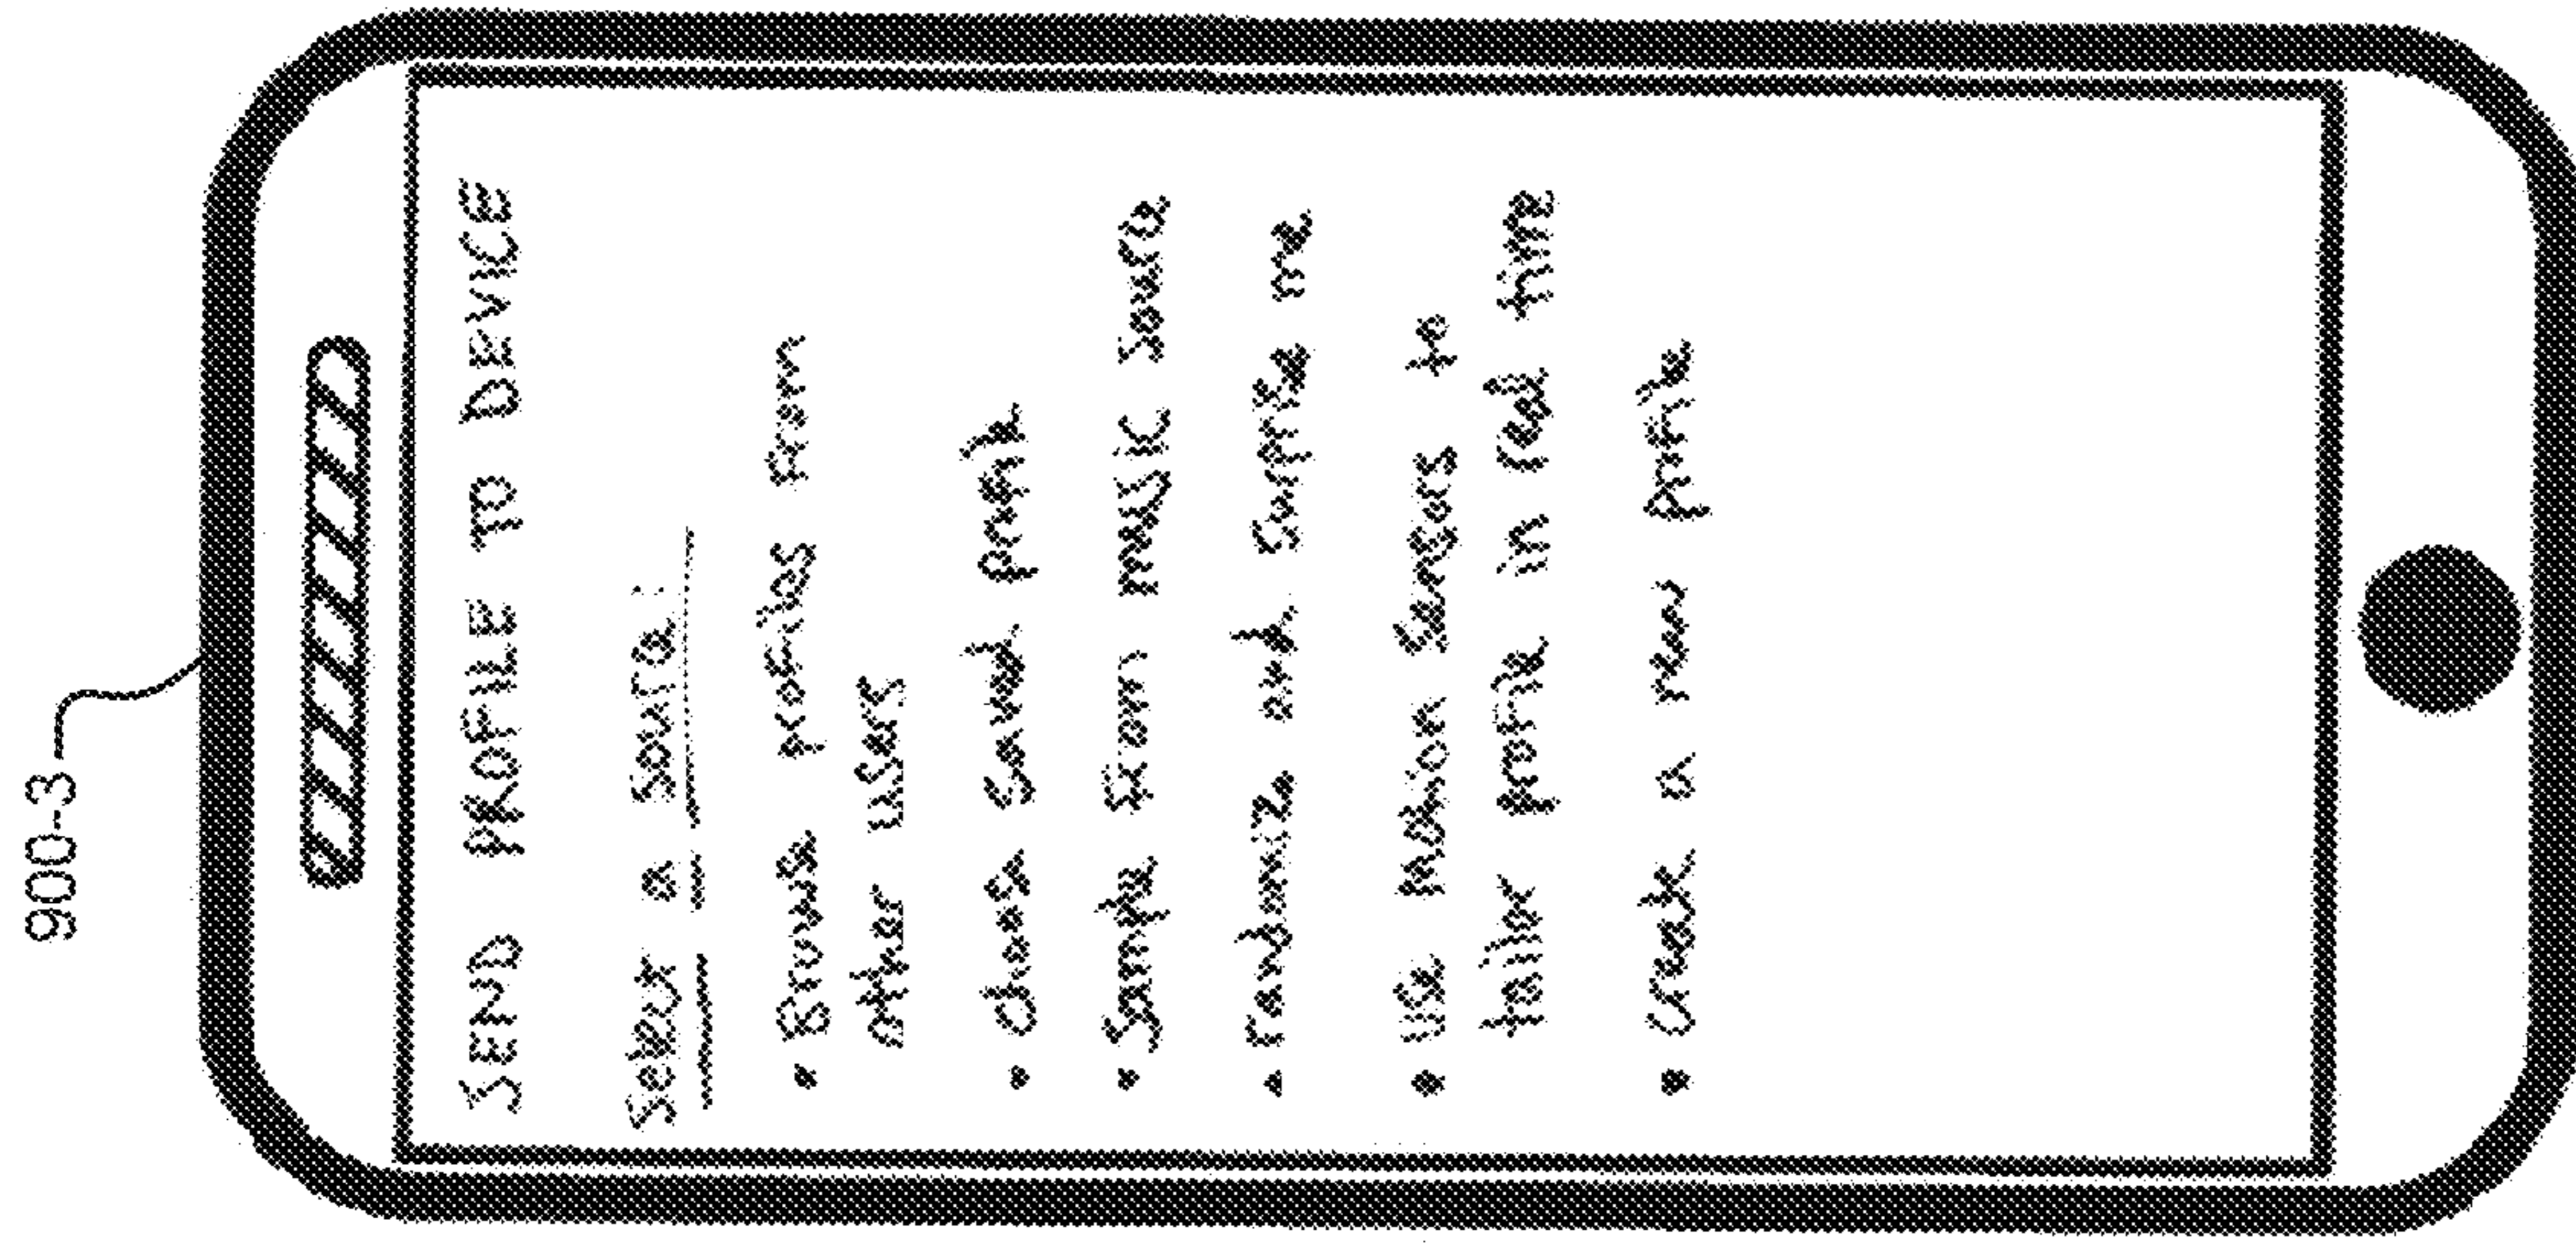 900-3
SEND PROFILE TO DEVICE
Select a source:
• Browse profiles from
other users
• choose saved profile
• Sample from music source
• randomize and surprise me
• use motion sensors to
tailor profile in real time
• Create a new profile